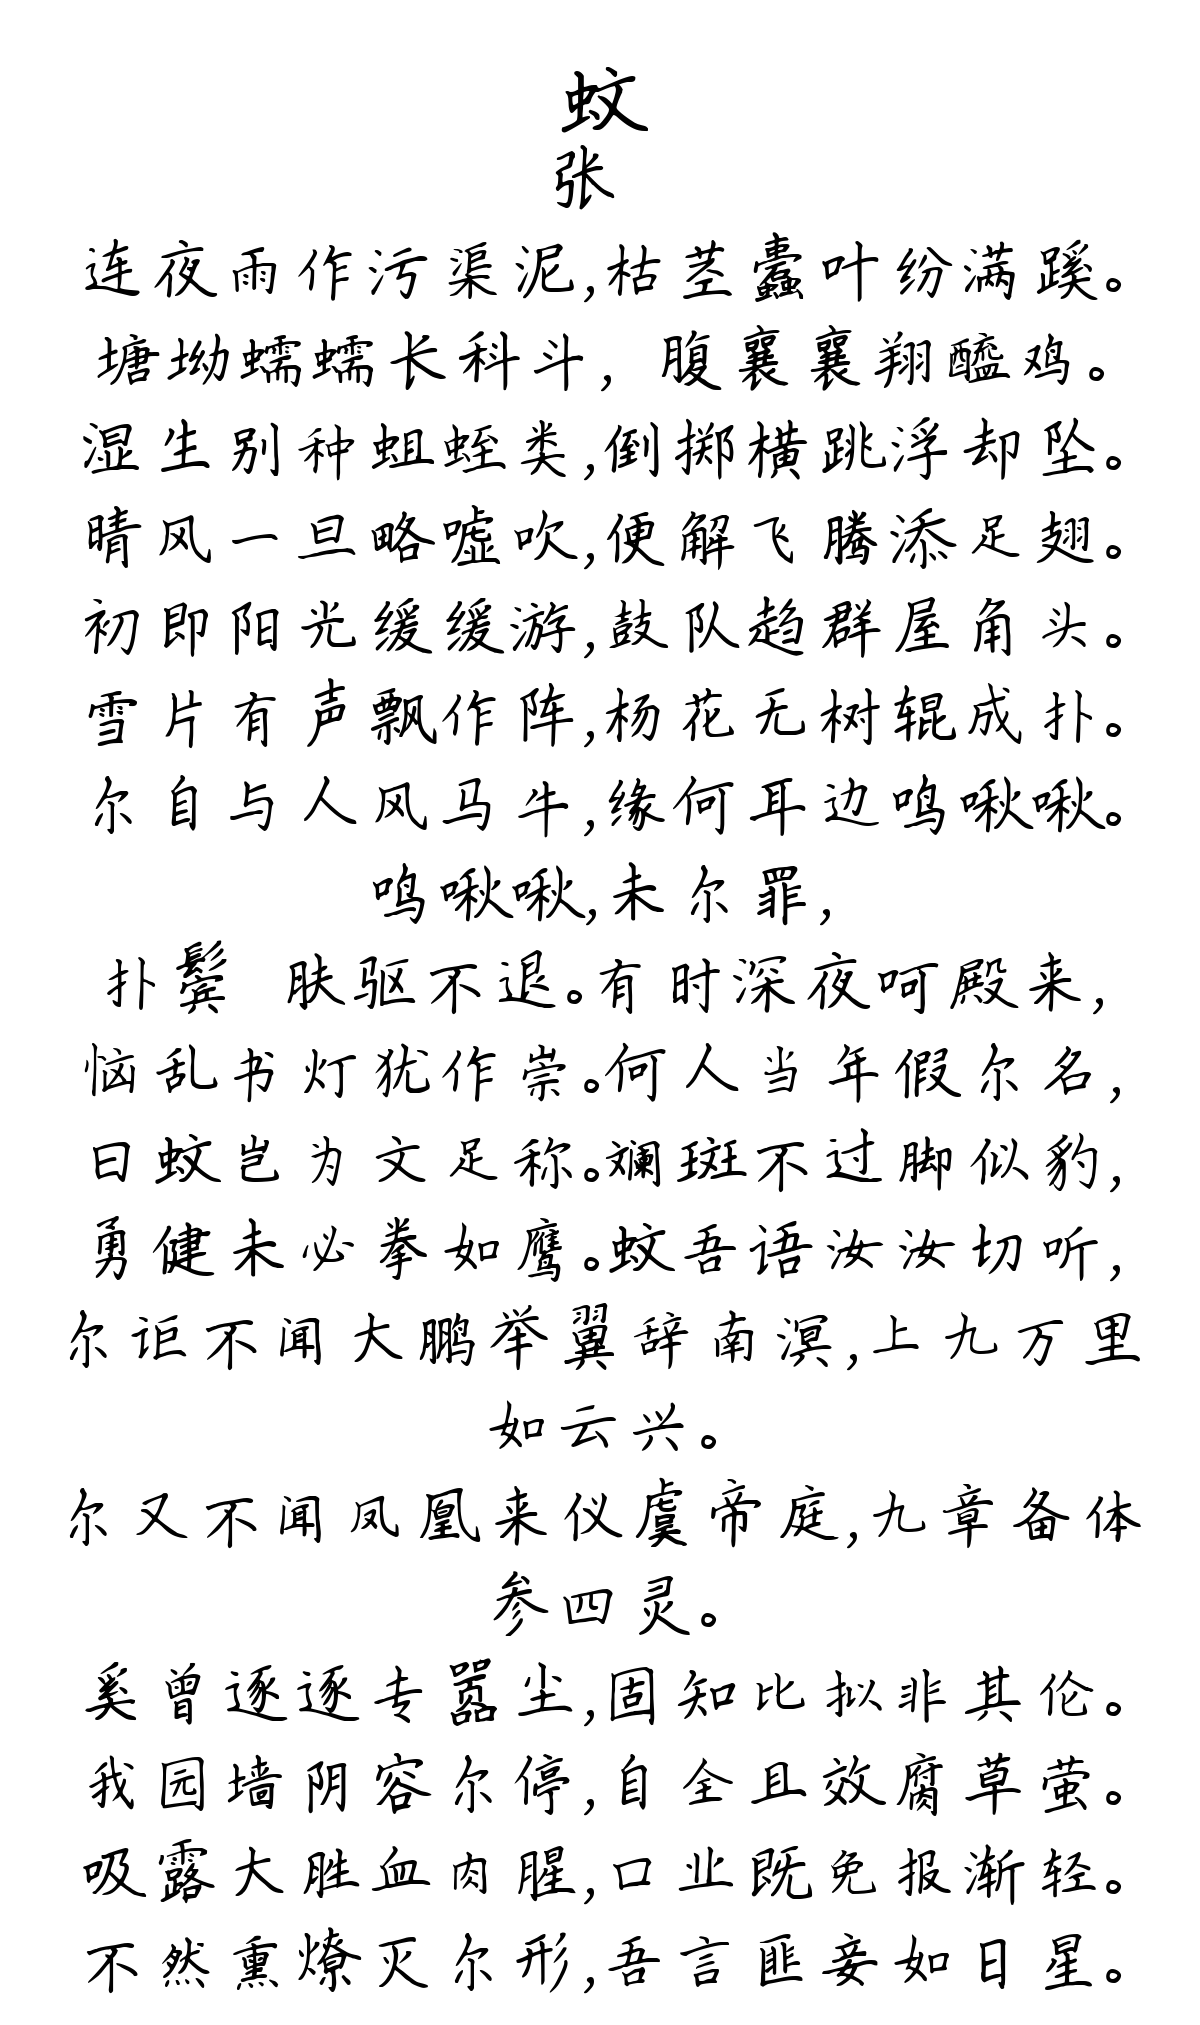 蚊
张
连夜雨作污渠泥,枯茎蠹叶纷满蹊。
塘坳蠕蠕长科斗, 腹襄襄翔醯鸡。
湿生别种蛆蛭类,倒掷横跳浮却坠。
晴风一旦略嘘吹,便解飞腾添足翅。
初即阳光缓缓游,鼓队趋群屋角头。
雪片有声飘作阵,杨花无树辊成扑。
尔自与人风马牛,缘何耳边鸣啾啾。
鸣啾啾,未尔罪,
扑鬓 肤驱不退。有时深夜呵殿来,
恼乱书灯犹作崇。何人当年假尔名,
曰蚊岂为文足称。斓斑不过脚似豹,
勇健未必拳如鹰。蚊吾语汝汝切听,
尔讵不闻大鹏举翼辞南溟,上九万里
如云兴。
尔又不闻凤凰来仪虞帝庭,九章备体
参四灵。
奚曾逐逐专嚣尘,固知比拟非其伦。
我园墙阴容尔停,自全且效腐草萤。
吸露大胜血肉腥,口业既免报渐轻。
不然熏燎灭尔形,吾言匪妾如日星。